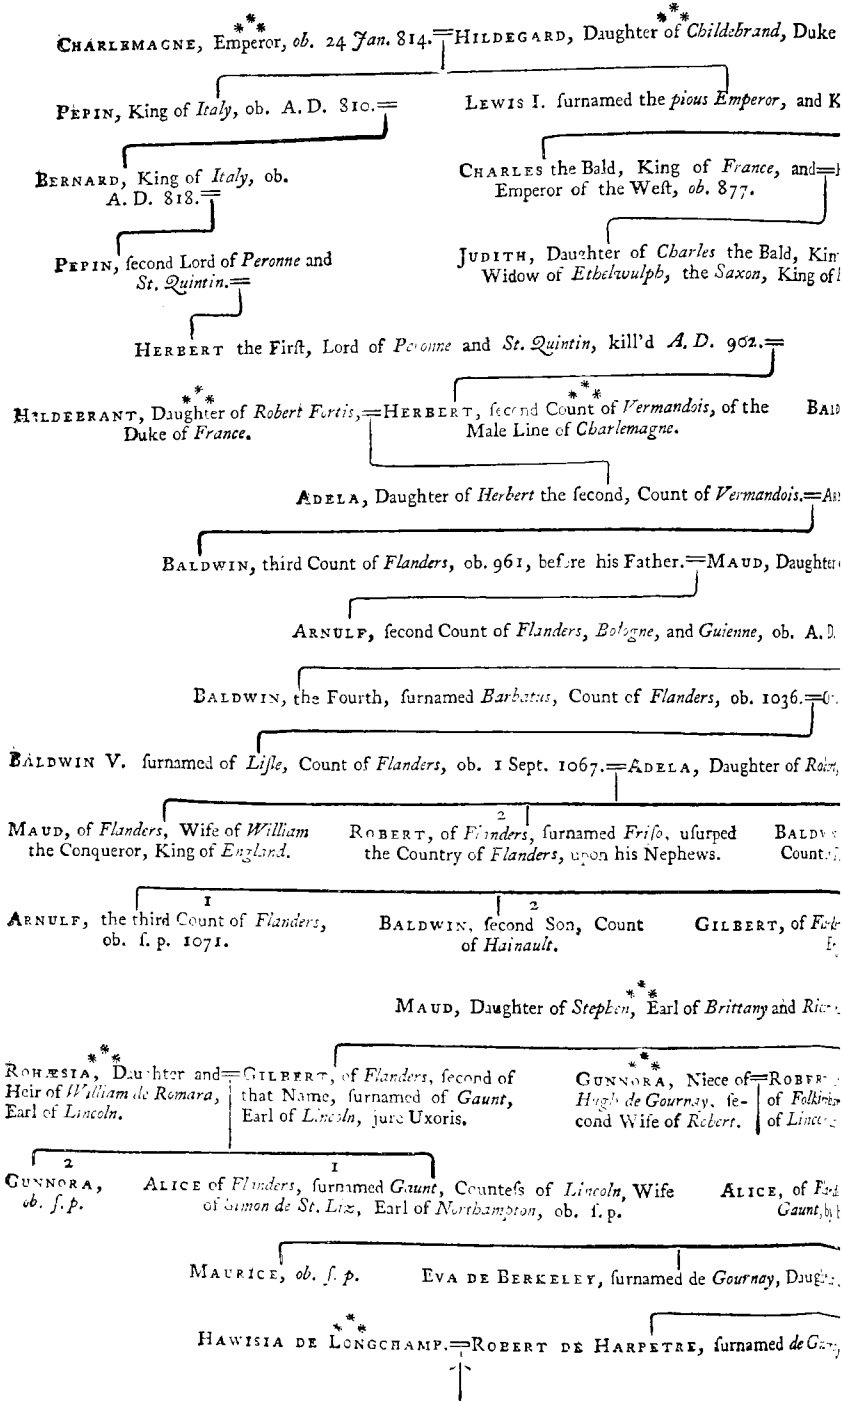 CHARLEMAGNE, Emperor, ob. 24 Jan. 814.=HILDEGARD, Daughter of Childebrand, Duke
PEPIN, King of Italy, ob. A. D. 810.=
LEWIS I. surnamed the pious Emperor, and K
BERNARD, King of Italy, ob.
A. D. 818.=
CHARLES the Bald, King of France, and=
Emperor of the Weſt, ob. 877.
PEPIN, ſecond Lord of Peronne and
St. Quintin.=
JUDITH, Daughter of Charles the Bald, Kin
Widow of Ethelwulph, the Saxon, King of
HERBERT the Firſt, Lord of Peronne and St. Quintin, kill'd A. D. 902.=
HILDEBRANT, Daughter of Robert Fortis,=HERBERT, ſecond Count of Vermandois, of the
Duke of France.
Male Line of Charlemagne.
BALD
ADELA, Daughter of Herbert the ſecond, Count of Vermandois.=
BALDWIN, third Count of Flanders, ob. 961, before his Father.=MAUD, Daughter
ARNULF, ſecond Count of Flanders, Bologne, and Guienne, ob. A. D.
BALDWIN, the Fourth, ſurnamed Barbatus, Count of Flanders, ob. 1036.=
BALDWIN V. ſurnamed of Liſle, Count of Flanders, ob. 1 Sept. 1067.=ADELA, Daughter of
MAUD, of Flanders, Wife of William
the Conqueror, King of England.
2
ROBERT, of Flanders, ſurnamed Friſo, uſurped
the Country of Flanders, upon his Nephews.
BALDW
Count
1
ARNULF, the third Count of Flanders,
ob. ſ. p. 1071.
2
BALDWIN, ſecond Son, Count
of Hainault.
GILBERT, of
MAUD, Daughter of Stephen, Earl of Brittany and
ROHÆSIA, Daughter and=GILBERT, of Flanders, ſecond of
Heir of William de Romara,
Earl of Lincoln.
that Name, ſurnamed of Gaunt,
Earl of Lincoln, jure Uxoris.
GUNNORA, Niece of=ROBER
Hugh de Gournay, ſe-
cond Wife of Robert.
of
of
2
GUNNORA,
ob. ſ. p.
1
ALICE of Flanders, ſurnamed Gaunt, Counteſs of Lincoln, Wife
of Simon de St. Liz, Earl of Northampton, ob. ſ. p.
ALICE, of
Gaunt,
MAURICE, ob. ſ. p.
EVA DE BERKELEY, ſurnamed de Gournay,
HAWISIA DE LONGCHAMP.=ROBERT DE HARPETRE, ſurnamed de